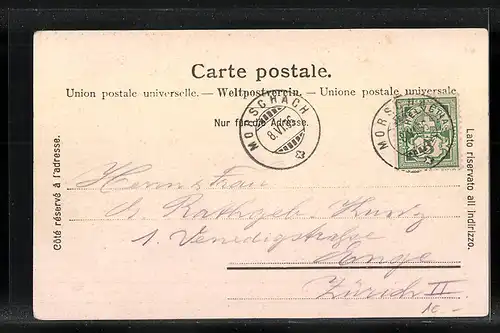 Carte postale.
Union postale universelle. — Weltpostverein. — Unione postale universale
Nur für die Adresse.
MORSCHACH
8.VI.
MORS
HELVETIA
Côté réservé à l'adresse.
Lato riservato all indirizzo.
Herrn & Frau
Rathgeb-Kunz
1. Venedigstrasse
Enge
Zürich II